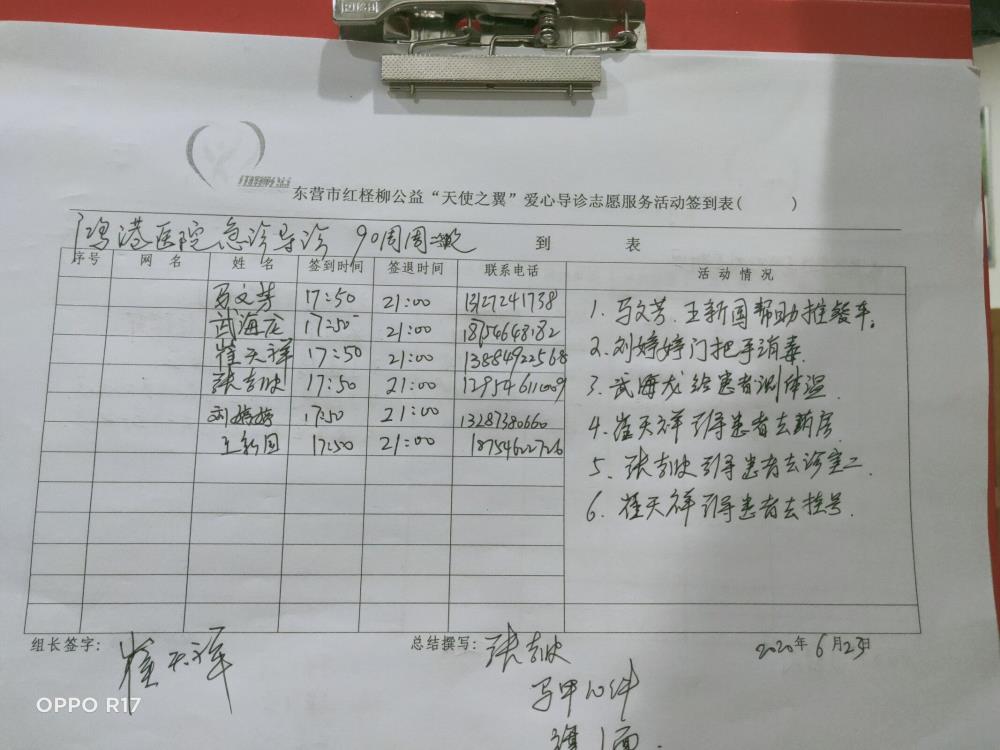 东营市红柽柳公益“天使之翼”爱心导诊志愿服务活动签到表( )
鸿港医院急诊导诊 90周周二晚 到 表
序号 网名 姓名 签到时间 签退时间 联系电话 活动情况
马文芳 17:50 21:00 13127241738
武海龙 17:50 21:00 18754648182
崔天祥 17:50 21:00 13884922568
张吉欣 17:50 21:00
刘婷婷 17:50 21:00 13287380660
王新国 17:50 21:00 18754622726
1. 马文芳、王新国帮助推轮车。
2. 刘婷婷门把手消毒
3. 武海龙给患者测体温
4. 崔天祥引导患者去药房.
5. 张吉欣引导患者去诊室二.
6. 崔天祥引导患者去挂号.
组长签字: 崔天祥 总结撰写: 张吉欣 2020年6月23日
马甲10件
旗1面.
OPPO R17